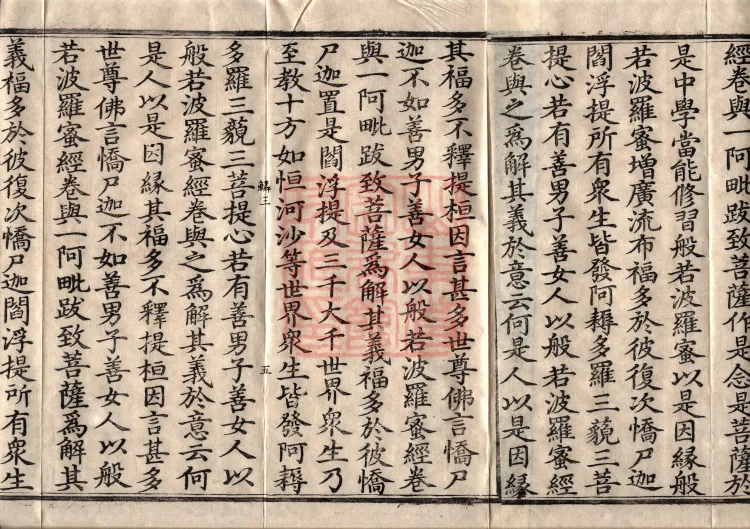 經卷與一阿毗跋致菩薩作是念是菩薩於
是中學當能修習般若波羅蜜以是因緣般
若波羅蜜增廣流布福多於彼復次憍尸迦
閻浮提所有衆生皆發阿耨多羅三藐三菩
提心若有善男子善女人以般若波羅蜜經
卷與之爲解其義於意云何是人以是因緣
其福多不釋提桓因言甚多世尊佛言憍尸
迦不如善男子善女人以般若波羅蜜經卷
與一阿毗跋致菩薩爲解其義福多於彼憍
尸迦置是閻浮提及三千大千世界衆生乃
至教十方如恒河沙等世界衆生皆發阿耨
鱗三 五
多羅三藐三菩提心若有善男子善女人以
般若波羅蜜經卷與之爲解其義於意云何
是人以是因緣其福多不釋提桓因言甚多
世尊佛言憍尸迦不如善男子善女人以般
若波羅蜜經卷與一阿毗跋致菩薩爲解其
義福多於彼復次憍尸迦閻浮提所有衆生